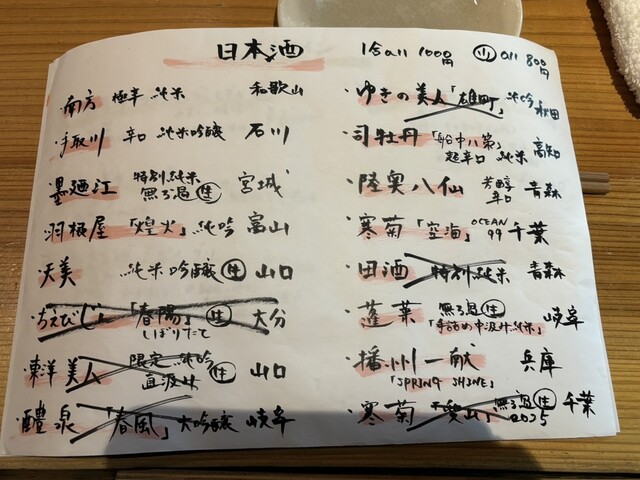 日本酒 1合all 1000円 小all 800円
・南方 極辛 純米 和歌山
・手取川 辛口 純米吟醸 石川
・墨廼江 特別純米 無ろ過 生 宮城
・羽根屋「煌火」純吟 富山
・天美 純米吟醸 生 山口
・ちえびじん「春陽」生 しぼりたて 大分
・東洋美人 限定純吟 直汲み 生 山口
・醴泉「春風」大吟醸 岐阜
・ゆきの美人「雄町」純吟 秋田
・司牡丹「船中八策」超辛口 純米 高知
・陸奥八仙 芳醇辛口 青森
・寒菊「空海」OCEAN 99 千葉
・田酒 特別純米 青森
・蓬莱 無ろ過 生「手詰め中汲み純米」 岐阜
・播州一献「SPRING SHINE」 兵庫
・寒菊「愛山」無ろ過 生 2025 千葉